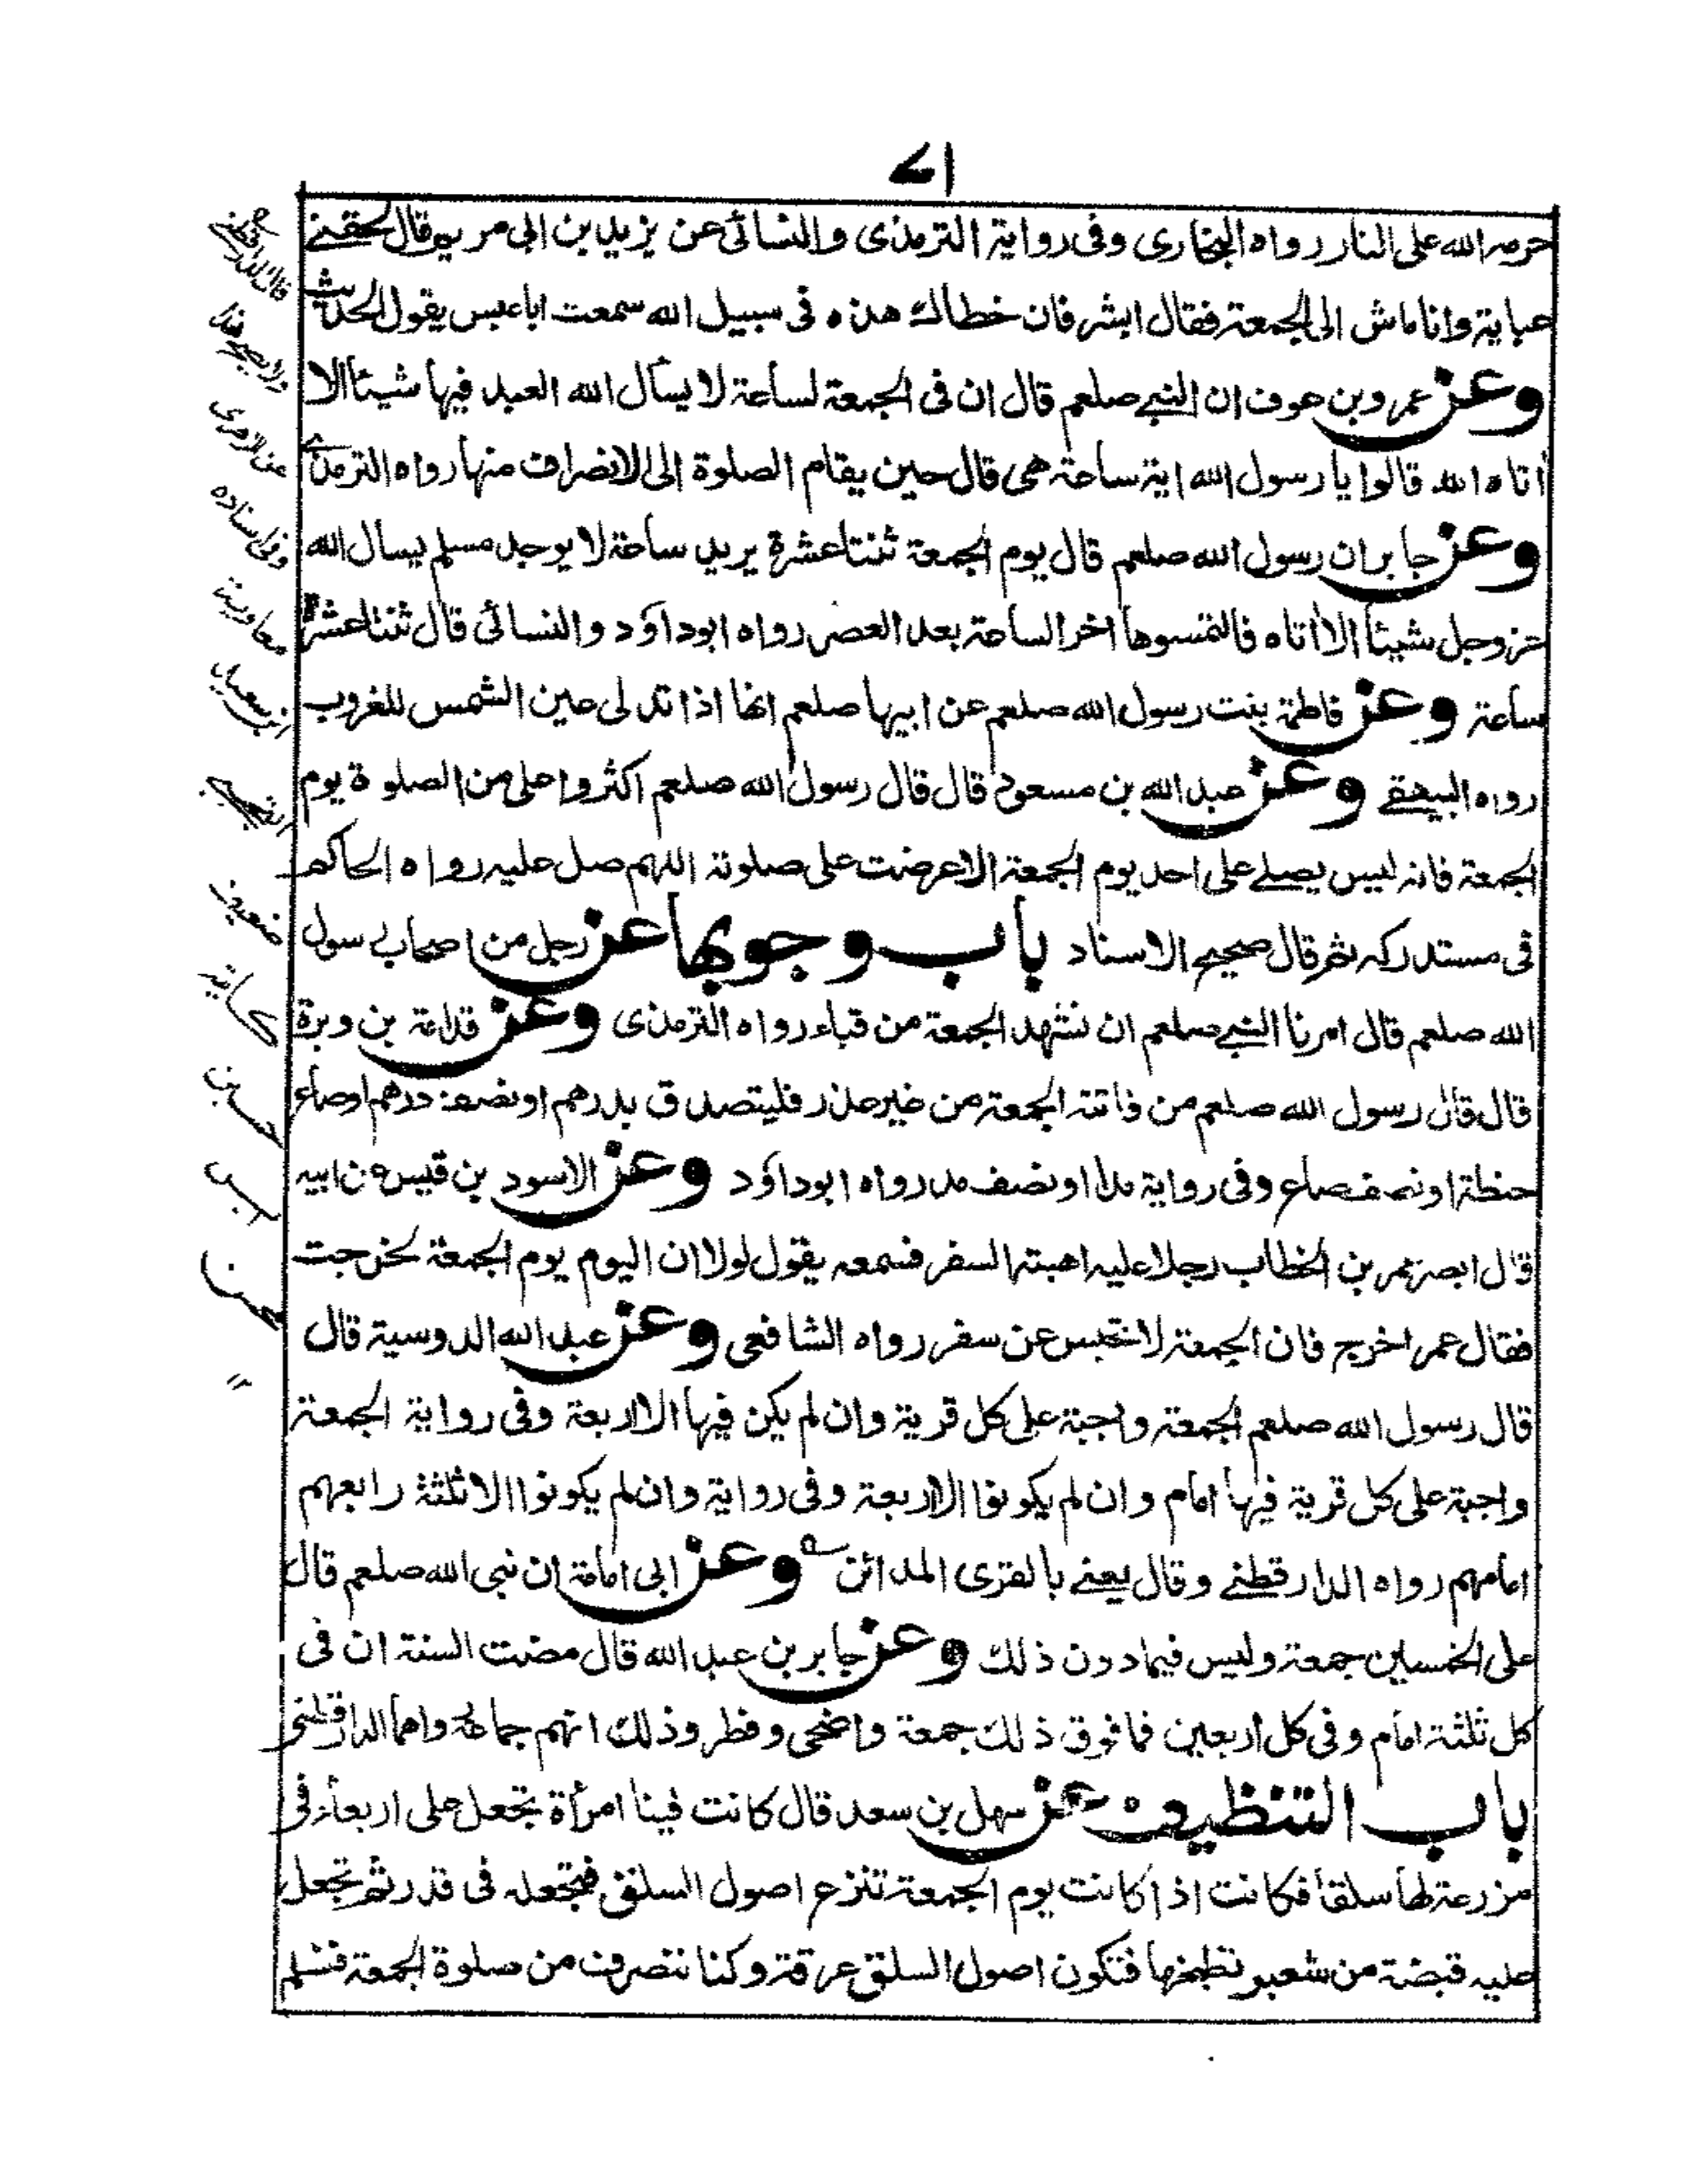 ٧١
حرمہ اللہ علی النار رواہ البخاری وفی روایۃ الترمذی والنسائی عن یزید بن ابی مریم قال لحقنے
عبایۃ وانا ماش الی الجمعۃ فقال ابشر فان خطاك ھذہ فی سبیل اللہ سمعت ابا عبس یقول الحدیث
وعن عمرو بن عوف ان النبے صلعم قال ان فی الجمعۃ لساعۃ لا یسأل اللہ العبد فیہا شیئا الا
أتاہ اللہ قالوا یا رسول اللہ ایۃ ساعۃ ھی قال حین یقام الصلوۃ الی الانصراف منہا رواہ الترمذے
وعن جابر ان رسول اللہ صلعم قال یوم الجمعۃ ثنتا عشرۃ یرید ساعۃ لا یوجد مسلم یسال اللہ
عز وجل شیئا الا أتاہ فالتمسوھا اخر الساعۃ بعد العصر رواہ ابوداؤد والنسائی قال ثنتا عشرۃ
ساعۃ وعن فاطمۃ بنت رسول اللہ صلعم عن ابیہا صلعم انھا اذا تدلی حین الشمس للغروب
رواہ البیھقے وعن عبد اللہ بن مسعود قال قال رسول اللہ صلعم اکثروا علی من الصلوۃ یوم
الجمعۃ فانہ لیس یصلے علی احد یوم الجمعۃ الا عرضت علی صلوتہ اللہم صل علیہ رواہ الحاکم
فی مستدرکہ ثم قال صحیح الاسناد باب وجوبھا عن رجل من اصحاب رسول
اللہ صلعم قال امرنا النبے صلعم ان نشہد الجمعۃ من قباء رواہ الترمذی وعن قدامۃ بن وبرۃ
قال قال رسول اللہ صلعم من فاتتہ الجمعۃ من غیر عذر فلیتصدق بدرھم او نصف درھم او صاع
حنطۃ او نصف صاع وفی روایۃ مدا او نصف مد رواہ ابوداؤد وعن الاسود بن قیس عن ابیہ
قال ابصر عمر بن الخطاب رجلا علیہ اھبتہ السفر فسمعہ یقول لولا ان الیوم یوم الجمعۃ لخرجت
فقال عمر اخرج فان الجمعۃ لا تحبس عن سفر رواہ الشافعی وعن عبد اللہ الدوسیۃ قال
قال رسول اللہ صلعم الجمعۃ واجبۃ علی کل قریۃ وان لم یکن فیہا الا اربعۃ وفی روایۃ الجمعۃ
واجبۃ علی کل قریۃ فیہا امام وان لم یکونوا الا اربعۃ وفی روایۃ وان لم یکونوا الا ثلثۃ رابعہم
امامہم رواہ الدارقطنے وقال یعنے بالقری المدائن وعن ابی امامۃ ان نبی اللہ صلعم قال
علی الخمسین جمعۃ ولیس فیما دون ذلك وعن جابر بن عبد اللہ قال مضت السنۃ ان فی
کل ثلثۃ امام وفی کل اربعین فما فوق ذلك جمعۃ واضحی وفطر وذلك انہم جماعۃ رواھما الدارقطنی
باب التنظیف عن سہل بن سعد قال کانت فینا امرأۃ تجعل علی اربعاء فی
مزرعۃ لھا سلقا فکانت اذا کانت یوم الجمعۃ تنزع اصول السلق فتجعلہ فی قدر ثم تجعل
علیہ قبضۃ من شعیر تطبخہا فتکون اصول السلق عرقۃ وکنا ننصرف من صلوۃ الجمعۃ فنسلم
قال الدارقطنے
عن الزھری
وفی اسنادہ
معاویۃ
بن سعید
ضعیف